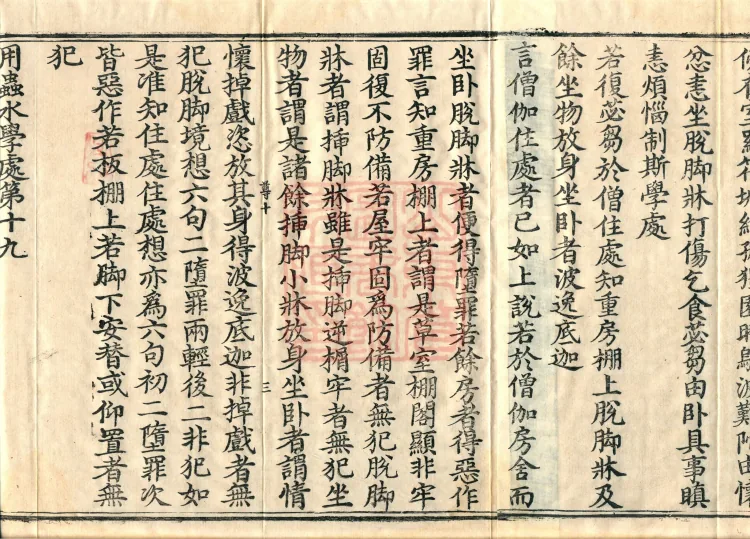 忿恚坐脫脚牀打傷乞食苾芻由臥具事瞋
恚煩惱制斯學處
若復苾芻於僧住處知重房棚上脫脚牀及
餘坐物放身坐臥者波逸底迦
言僧伽住處者已如上說若於僧伽房舍而
坐臥脫脚牀者便得墮罪若餘房者得惡作
罪言知重房棚上者謂是草室棚閣顯非牢
固復不防備若屋牢固爲防備者無犯脫脚
牀者謂揷脚牀雖是揷脚逆楔牢者無犯坐
物者謂是諸餘揷脚小牀放身坐臥者謂情
尊十
三
懷掉戲恣放其身得波逸底迦非掉戲者無
犯脫脚境想六句二墮罪兩輕後二非犯如
是准知住處住處想亦爲六句初二墮罪次
皆惡作若板棚上若脚下安替或仰置者無
犯
用蟲水學處第十九